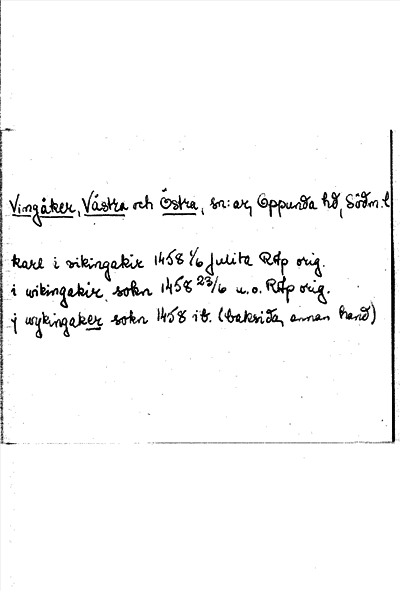 Vingåker, Västra och Östra, sn:ar, Oppunda hd, Södm.l
karl i vikingakir 1458 1/6 Julita RAp orig.
i wikingakir sokn 1458 23/6 u.o. RAp orig.
j wykingaker sokn 1458 ib. (baksida, annan hand)